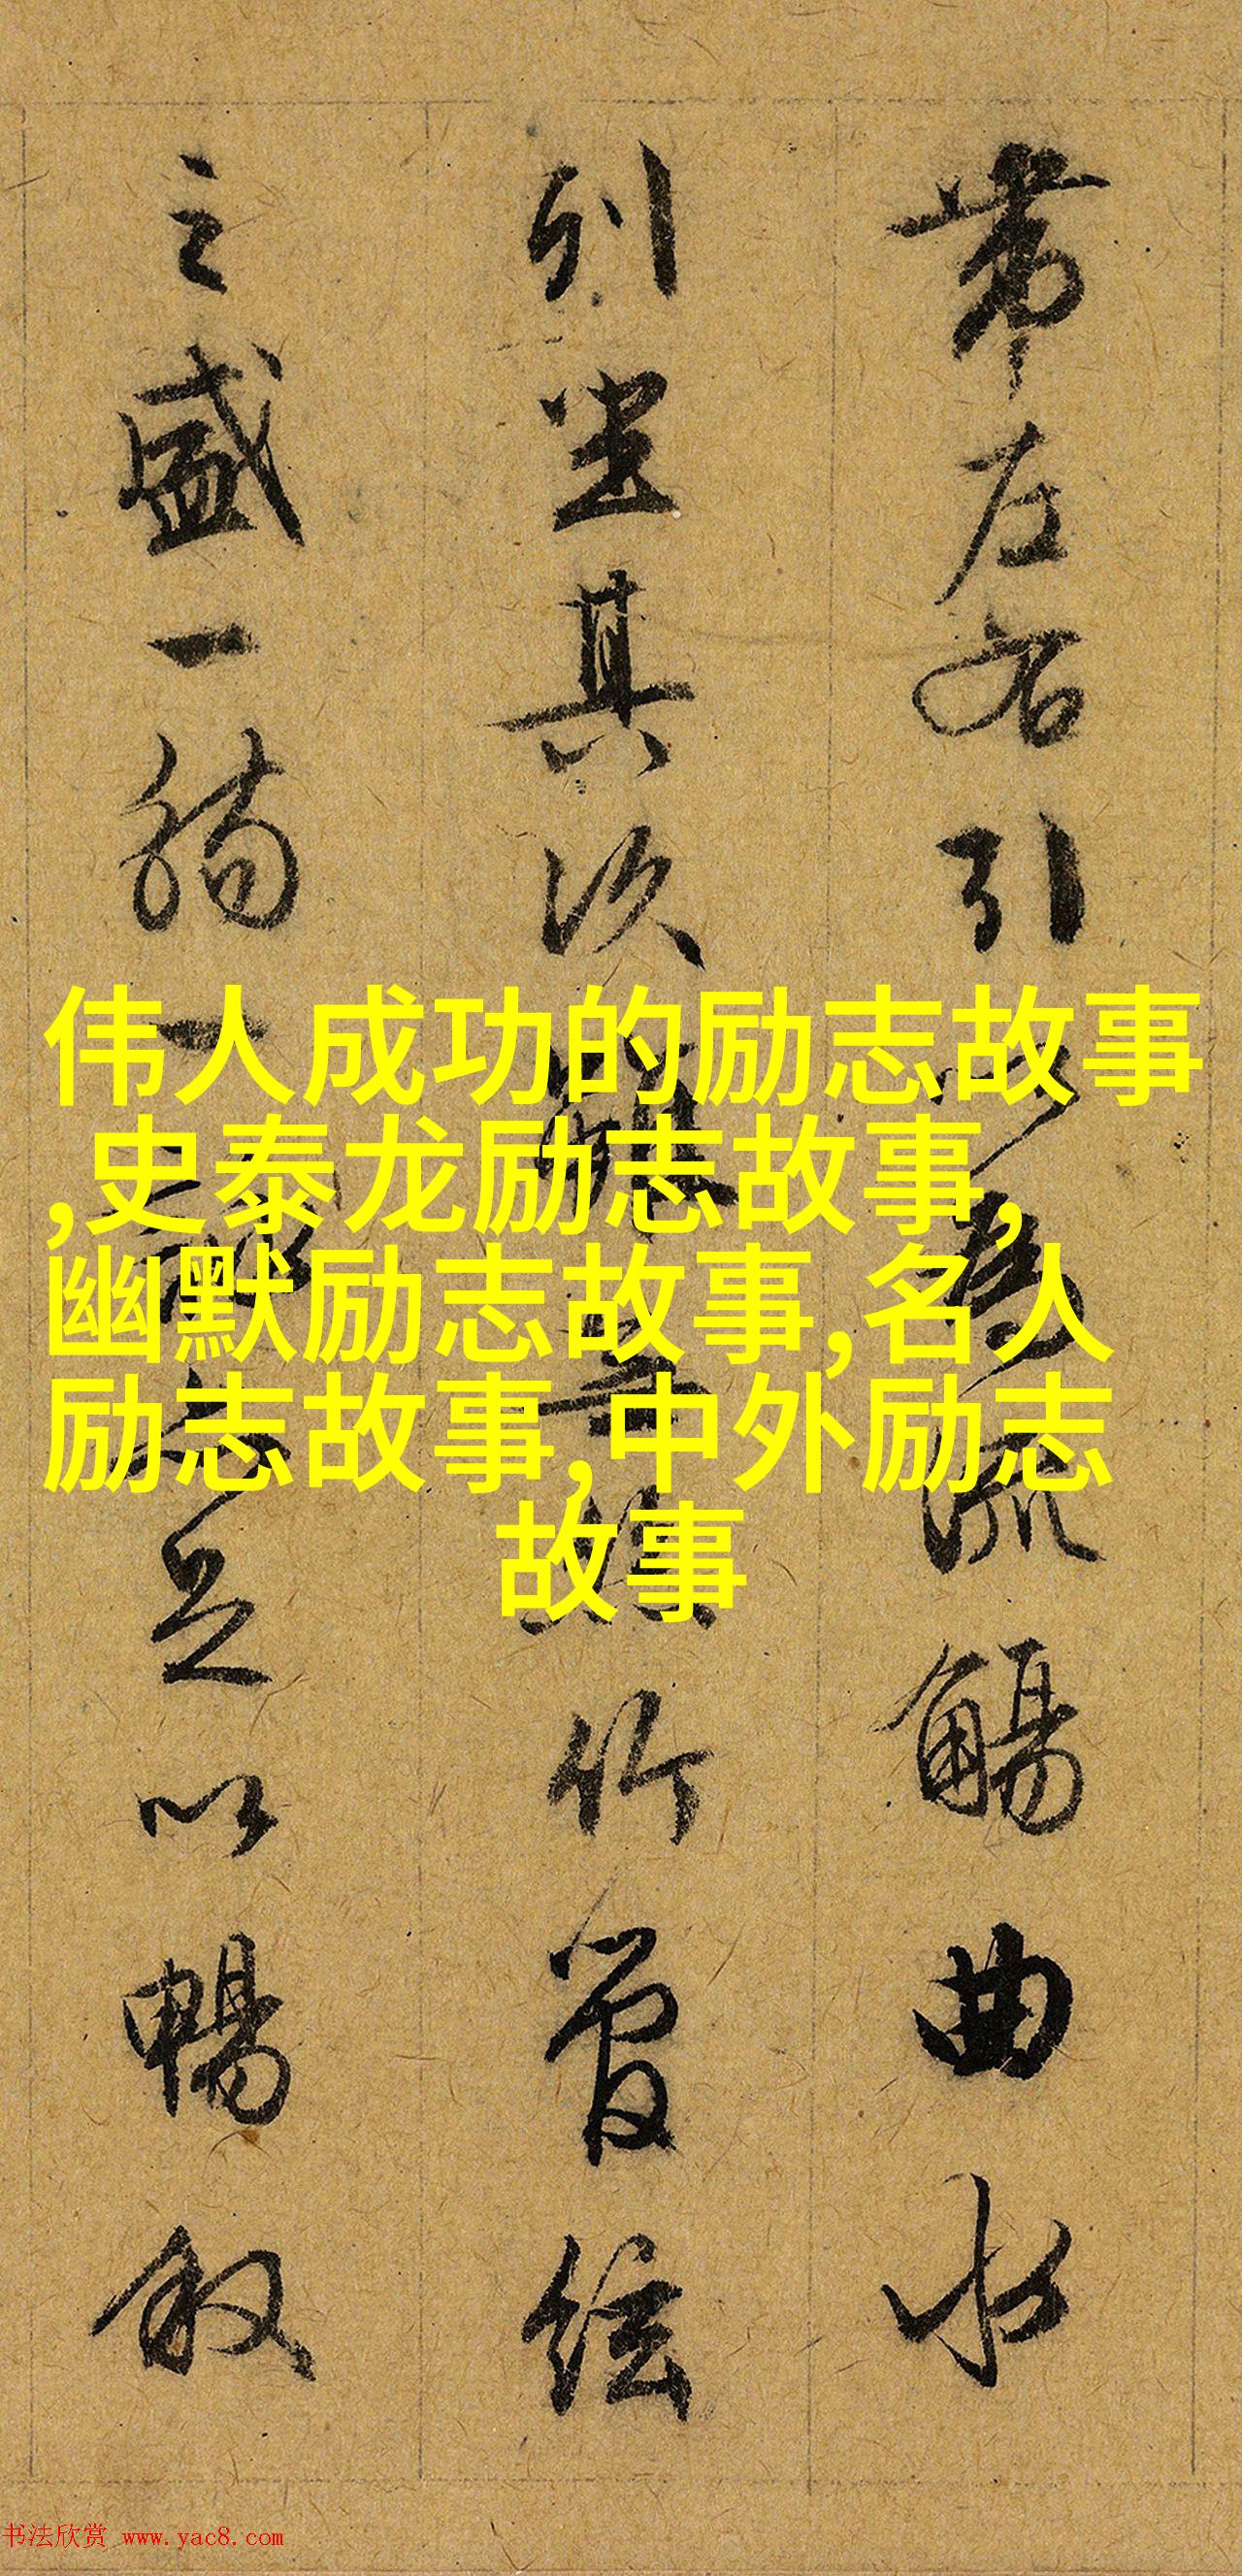 帶左右引以為流觴曲水
列坐其次雖無絲竹管絃
之盛一觴一詠亦足以暢叙
伟人成功的励志故事
,史泰龙励志故事,
幽默励志故事,名人
励志故事,中外励志
故事
书法欣赏 www.yac8.com